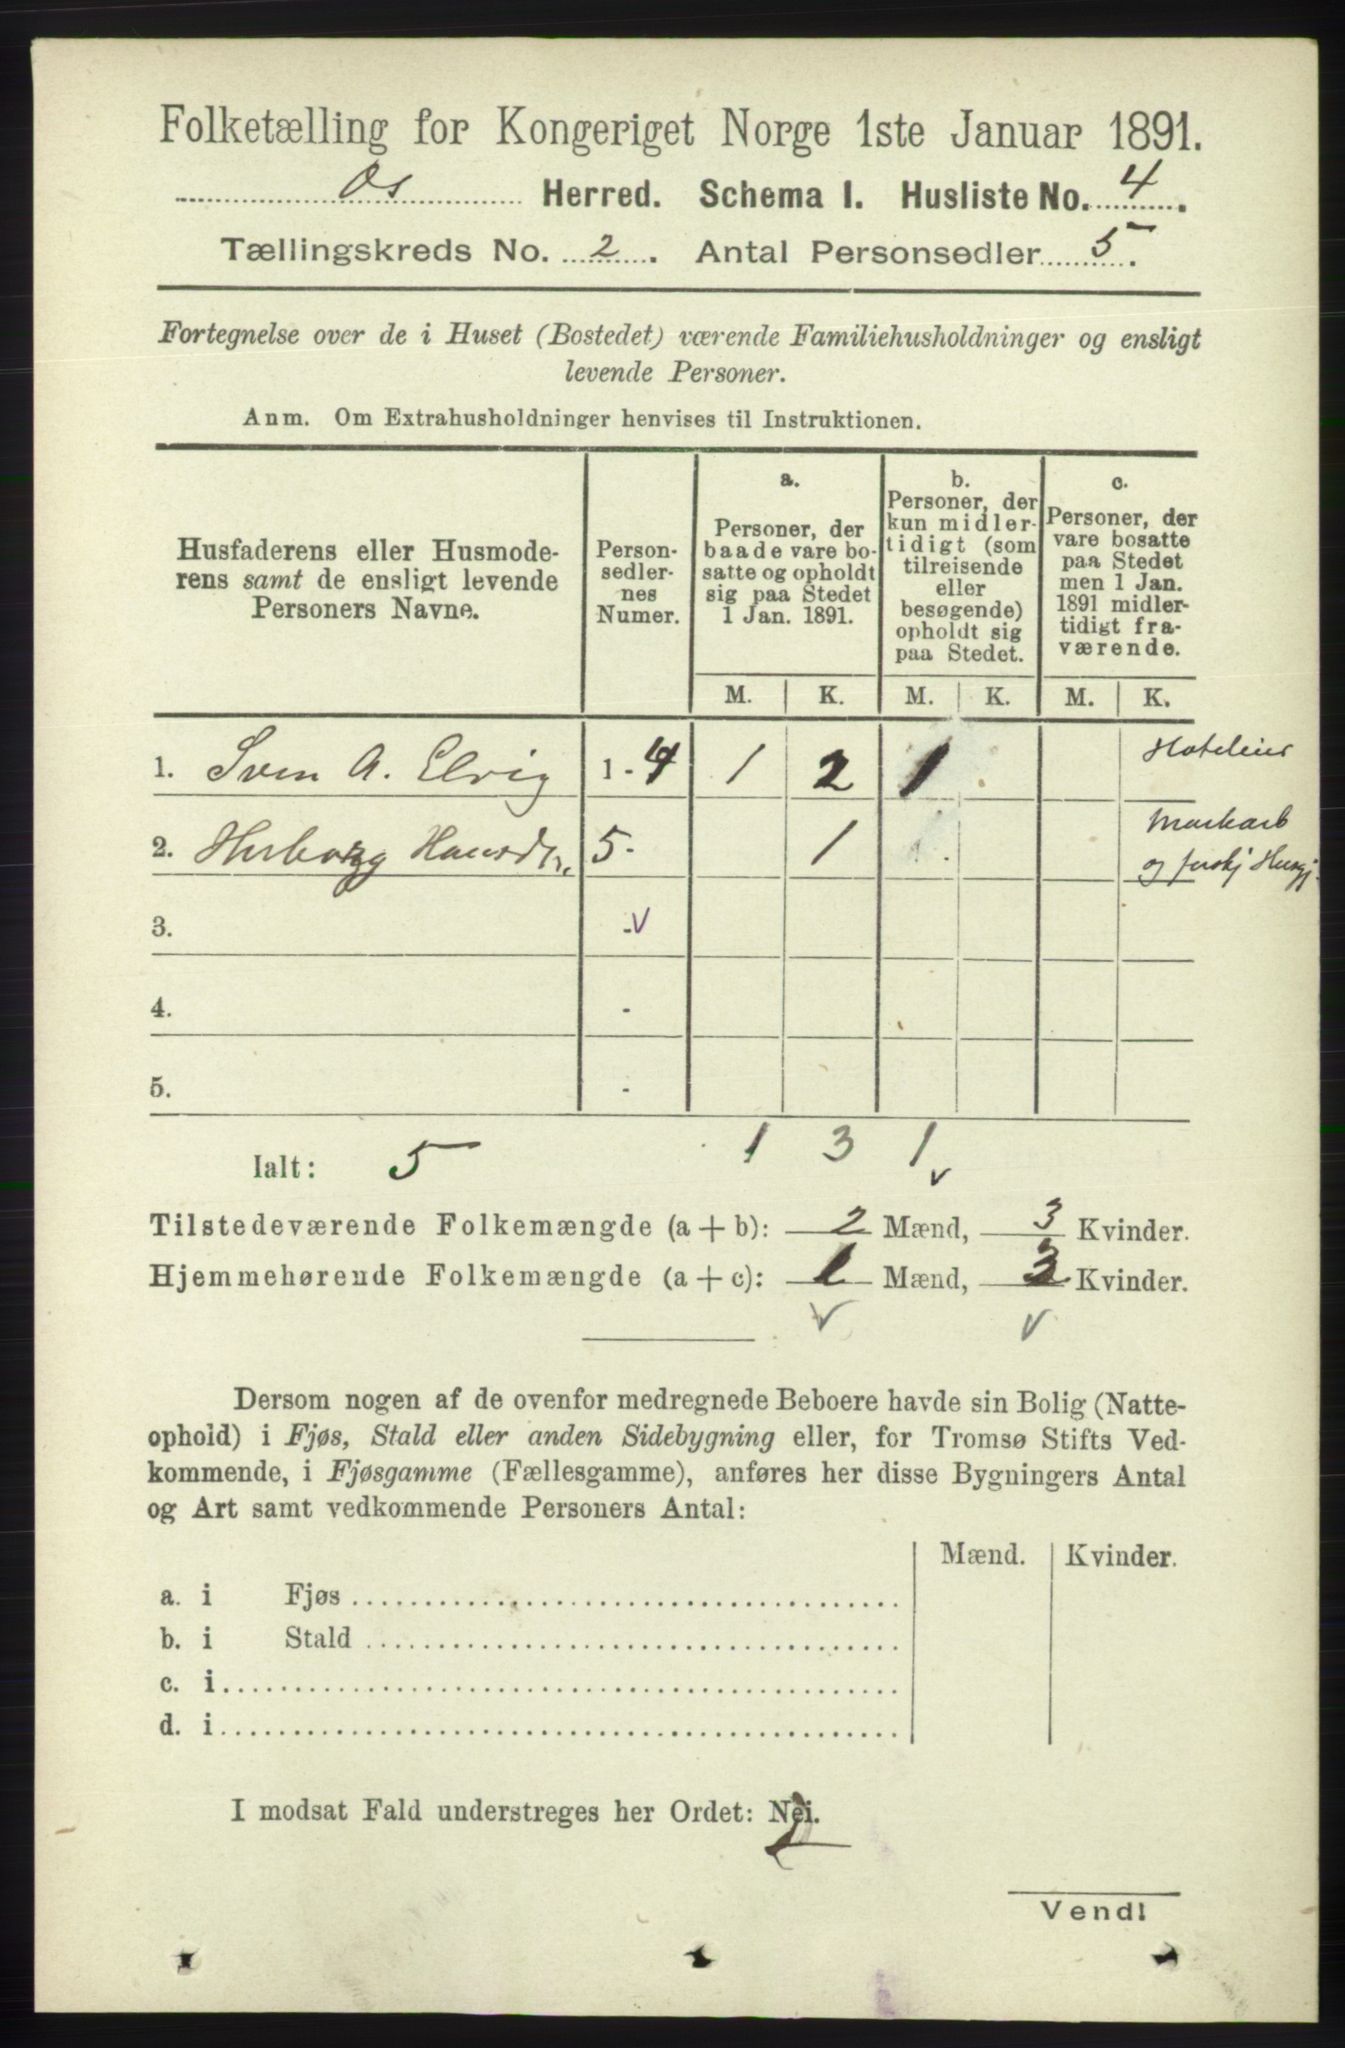 Folketælling for Kongeriget Norge 1ste Januar 1891.
Os Herred. Schema I. Husliste No. 4.
Tællingskreds No. 2. Antal Personsedler 5.
Fortegnelse over de i Huset (Bostedet) værende Familiehusholdninger og ensligt
levende Personer.
Anm. Om Extrahusholdninger henvises til Instruktionen.
Husfaderens eller Husmode-
rens samt de ensligt levende
Personers Navne.
Person-
sedler-
nes
Numer.
a.
Personer, der
baade vare bo-
satte og opholdt
sig paa Stedet
1 Jan. 1891.
b.
Personer, der
kun midler-
tidigt (som
tilreisende
eller
besøgende)
opholdt sig
paa Stedet.
c.
Personer, der
vare bosatte
paa Stedet
men 1 Jan.
1891 midler-
tidigt fra-
værende.
M. K. M. K. M. K.
1. Sven A. Elvig 1 - 4 1 2 1 Hoteleier
2. Herborg Hansdtr. 5 - 1 Markarb
og forskj Husgj.
3. - v
4. -
5. -
Ialt: 5 1 3 1 v
Tilstedeværende Folkemængde (a + b): 2 Mænd, 3 Kvinder.
Hjemmehørende Folkemængde (a + c): 1 Mænd, 3 Kvinder.
v v
Dersom nogen af de ovenfor medregnede Beboere havde sin Bolig (Natte-
ophold) i Fjøs, Stald eller anden Sidebygning eller, for Tromsø Stifts Ved-
kommende, i Fjøsgamme (Fællesgamme), anføres her disse Bygningers Antal
og Art samt vedkommende Personers Antal:
Mænd. Kvinder.
a. i Fjøs
b. i Stald
c. i
d. i
I modsat Fald understreges her Ordet: Nei.
Vend!